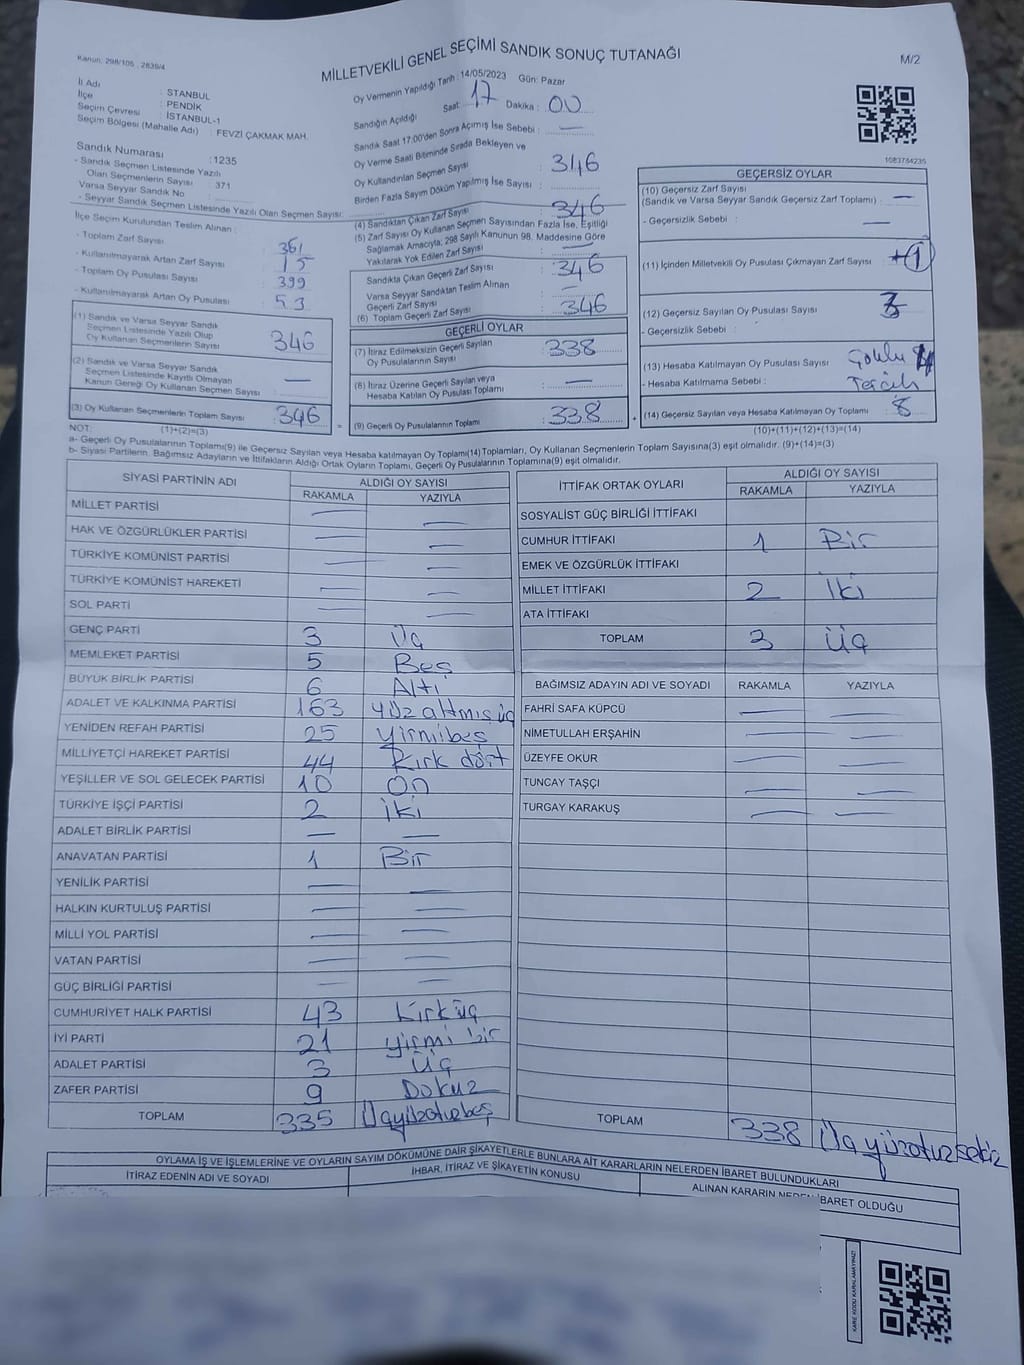 Kanun: 298/105 , 2839/4
MİLLETVEKİLİ GENEL SEÇİMİ SANDIK SONUÇ TUTANAĞI
M/2
İl Adı : STANBUL
İlçe : PENDİK
Seçim Çevresi : İSTANBUL-1
Seçim Bölgesi (Mahalle Adı) : FEVZİ ÇAKMAK MAH.
Sandık Numarası : 1235
- Sandık Seçmen Listesinde Yazılı
Olan Seçmenlerin Sayısı : 371
Varsa Seyyar Sandık No
- Seyyar Sandık Seçmen Listesinde Yazılı Olan Seçmen Sayısı:
Oy Vermenin Yapıldığı Tarih : 14/05/2023 Gün: Pazar
Sandığın Açıldığı Saat: 17 Dakika : 00
Sandık Saat 17:00'den Sonra Açımış İse Sebebi : —
Oy Verme Saati Bitiminde Sırada Bekleyen ve
Oy Kullandırılan Seçmen Sayısı : 346
Birden Fazla Sayım Döküm Yapılmış İse Sayısı :
1083784235
İlçe Seçim Kurulundan Teslim Alınan :
- Toplam Zarf Sayısı : 361
- Kullanılmayarak Artan Zarf Sayısı : 15
- Toplam Oy Pusulası Sayısı : 399
- Kullanılmayarak Artan Oy Pusulası : 53
(1) Sandık ve Varsa Seyyar Sandık
Seçmen Listesinde Yazılı Olup
Oy Kullanan Seçmenlerin Sayısı : 346
(2) Sandık ve Varsa Seyyar Sandık
Seçmen Listesinde Kayıtlı Olmayan
Kanun Gereği Oy Kullanan Seçmen Sayısı : —
(3) Oy Kullanan Seçmenlerin Toplam Sayısı : 346
(4) Sandıktan Çıkan Zarf Sayısı : 346
(5) Zarf Sayısı Oy Kullanan Seçmen Sayısından Fazla İse, Eşitliği
Sağlamak Amacıyla, 298 Sayılı Kanunun 98. Maddesine Göre
Yakılarak Yok Edilen Zarf Sayısı : —
Sandıkta Çıkan Geçerli Zarf Sayısı : 346
Varsa Seyyar Sandıktan Teslim Alınan
Geçerli Zarf Sayısı : —
(6) Toplam Geçerli Zarf Sayısı : 346
GEÇERLİ OYLAR
(7) İtiraz Edilmeksizin Geçerli Sayılan
Oy Pusulalarının Sayısı : 338
(8) İtiraz Üzerine Geçerli Sayılan veya
Hesaba Katılan Oy Pusulası Toplamı : —
(9) Geçerli Oy Pusulalarının Toplamı : 338
GEÇERSİZ OYLAR
(10) Geçersiz Zarf Sayısı
(Sandık ve Varsa Seyyar Sandık Geçersiz Zarf Toplamı) : —
- Geçersizlik Sebebi : —
(11) İçinden Milletvekili Oy Pusulası Çıkmayan Zarf Sayısı : +1
(12) Geçersiz Sayılan Oy Pusulası Sayısı :
- Geçersizlik Sebebi :
(13) Hesaba Katılmayan Oy Pusulası Sayısı : Çoklu
- Hesaba Katılmama Sebebi : Tercih
(14) Geçersiz Sayılan veya Hesaba Katılmayan Oy Toplamı : 8
NOT: (1)+(2)=(3)
(10)+(11)+(12)+(13)=(14)
a- Geçerli Oy Pusulalarının Toplamı(9) ile Geçersiz Sayılan veya Hesaba katılmayan Oy Toplamı(14) Toplamları, Oy Kullanan Seçmenlerin Toplam Sayısına(3) eşit olmalıdır. (9)+(14)=(3)
b- Siyasi Partilerin, Bağımsız Adayların ve İttifakların Aldığı Ortak Oyların Toplamı, Geçerli Oy Pusulalarının Toplamına(9) eşit olmalıdır.
SİYASİ PARTİNİN ADI ALDIĞI OY SAYISI
RAKAMLA YAZIYLA
MİLLET PARTİSİ — —
HAK VE ÖZGÜRLÜKLER PARTİSİ — —
TÜRKİYE KOMÜNİST PARTİSİ — —
TÜRKİYE KOMÜNİST HAREKETİ — —
SOL PARTİ — —
GENÇ PARTİ 3 Üç
MEMLEKET PARTİSİ 5 Beş
BÜYÜK BİRLİK PARTİSİ 6 Altı
ADALET VE KALKINMA PARTİSİ 163 yüz altmış üç
YENİDEN REFAH PARTİSİ 25 yirmibeş
MİLLİYETÇİ HAREKET PARTİSİ 44 Kırk dört
YEŞİLLER VE SOL GELECEK PARTİSİ 10 On
TÜRKİYE İŞÇİ PARTİSİ 2 İki
ADALET BİRLİK PARTİSİ — —
ANAVATAN PARTİSİ 1 Bir
YENİLİK PARTİSİ — —
HALKIN KURTULUŞ PARTİSİ — —
MİLLİ YOL PARTİSİ — —
VATAN PARTİSİ — —
GÜÇ BİRLİĞİ PARTİSİ — —
CUMHURİYET HALK PARTİSİ 43 Kırküç
İYİ PARTİ 21 yirmi bir
ADALET PARTİSİ 3 Üç
ZAFER PARTİSİ 9 Dokuz
TOPLAM 335 Üçyüzotuzbeş
İTTİFAK ORTAK OYLARI ALDIĞI OY SAYISI
RAKAMLA YAZIYLA
SOSYALİST GÜÇ BİRLİĞİ İTTİFAKI
CUMHUR İTTİFAKI 1 Bir
EMEK VE ÖZGÜRLÜK İTTİFAKI
MİLLET İTTİFAKI 2 İki
ATA İTTİFAKI
TOPLAM 3 Üç
BAĞIMSIZ ADAYIN ADI VE SOYADI RAKAMLA YAZIYLA
FAHRİ SAFA KÜPCÜ — —
NİMETULLAH ERŞAHİN — —
ÜZEYFE OKUR — —
TUNCAY TAŞÇI — —
TURGAY KARAKUŞ — —
TOPLAM 338 Üç yüzotuzsekiz
OYLAMA İŞ VE İŞLEMLERİNE VE OYLARIN SAYIM DÖKÜMÜNE DAİR ŞİKAYETLERLE BUNLARA AİT KARARLARIN NELERDEN İBARET BULUNDUKLARI
İTİRAZ EDENİN ADI VE SOYADI İHBAR, İTİRAZ VE ŞİKAYETİN KONUSU ALINAN KARARIN NEDEN İBARET OLDUĞU
KARE KODU KARALAMAYINIZ!